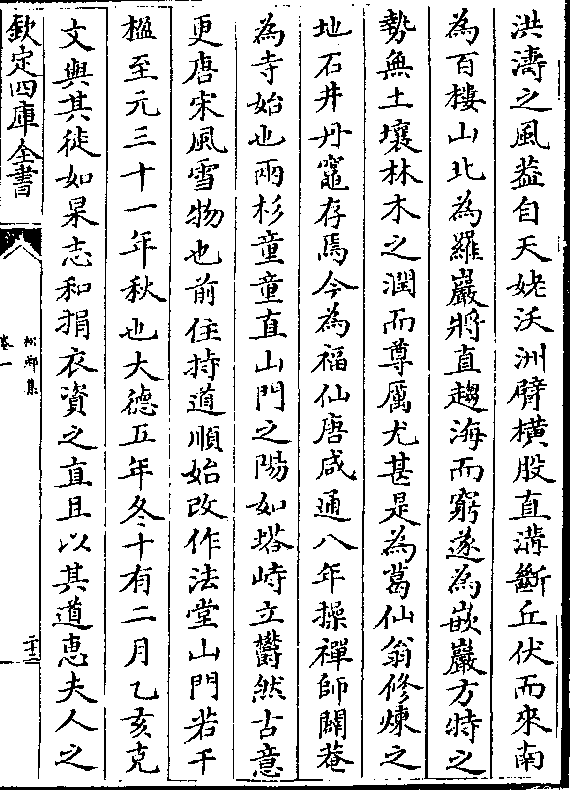 洪濤之風葢自天姥沃洲臂橫股直溝斷丘伏而來南
為百樓山北為羅巖將直趨海而窮遂為嵌巖方特之
勢無土壤林木之潤而尊厲尤甚是為葛仙翁修煉之
地石井丹竈存焉今為福仙唐咸通八年操禪師闢菴
為寺始也兩杉童童直山門之陽如塔峙立欝然古意
更唐宋風雪物也前住持道順始改作法堂山門若干
楹至元三十一年秋也大德五年冬十有二月乙亥克
文與其徒如杲志和捐衣資之直且以其道惠夫人之
欽定四庫全書
松鄉集
卷一
二十三